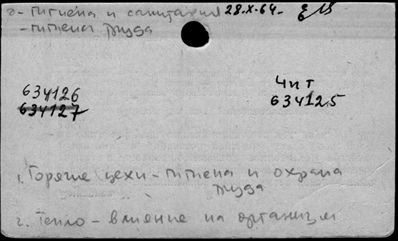 о- гигиена и санитария 28.X.64-
- гигиена труда
634126
634127
Чит
634125
1. Горячие цехи - гигиена и охрана
труда
2. Тепло - влияние на организм